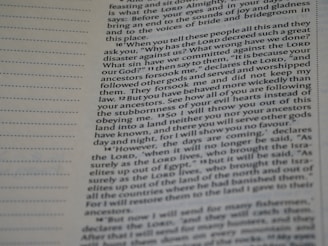 feasting and sit down
is what the LORD Almighty,
says: Before your eyes and in your days
bring an end to the sounds of joy and gladness
and to the voices of bride and bridegroom in
this place.
10 "When you tell these people all this and they
ask you, "Why has the LORD decreed such a great
disaster against us? What wrong have we done?
What sin have we committed against the LORD
our God?" 11 then say to them, "It is because your
ancestors forsook me," declares the LORD, "and
followed other gods and served and worshipped
them. They forsook me and did not keep my
law. 12 But you have behaved more wickedly than
your ancestors. See how all of you are following
the stubbornness of your evil hearts instead of
obeying me. 13 So I will throw you out of this
land into a land neither you nor your ancestors
have known, and there you will serve other gods
day and night, for I will show you no favour."
14 "However, the days are coming," declares
the LORD, "when it will no longer be said, "As
surely as the LORD lives, who brought the Isra-
elites up out of Egypt," 15 but it will be said, "As
surely as the LORD lives, who brought the Isra-
elites up out of the land of the north and out of
all the countries where he had banished them."
For I will restore them to the land I gave to their
ancestors.
16 "But now I will send for many fishermen,"
declares the LORD, "and they will catch them.
After that I will send for many hunters, and they
will hunt them down on every mountain